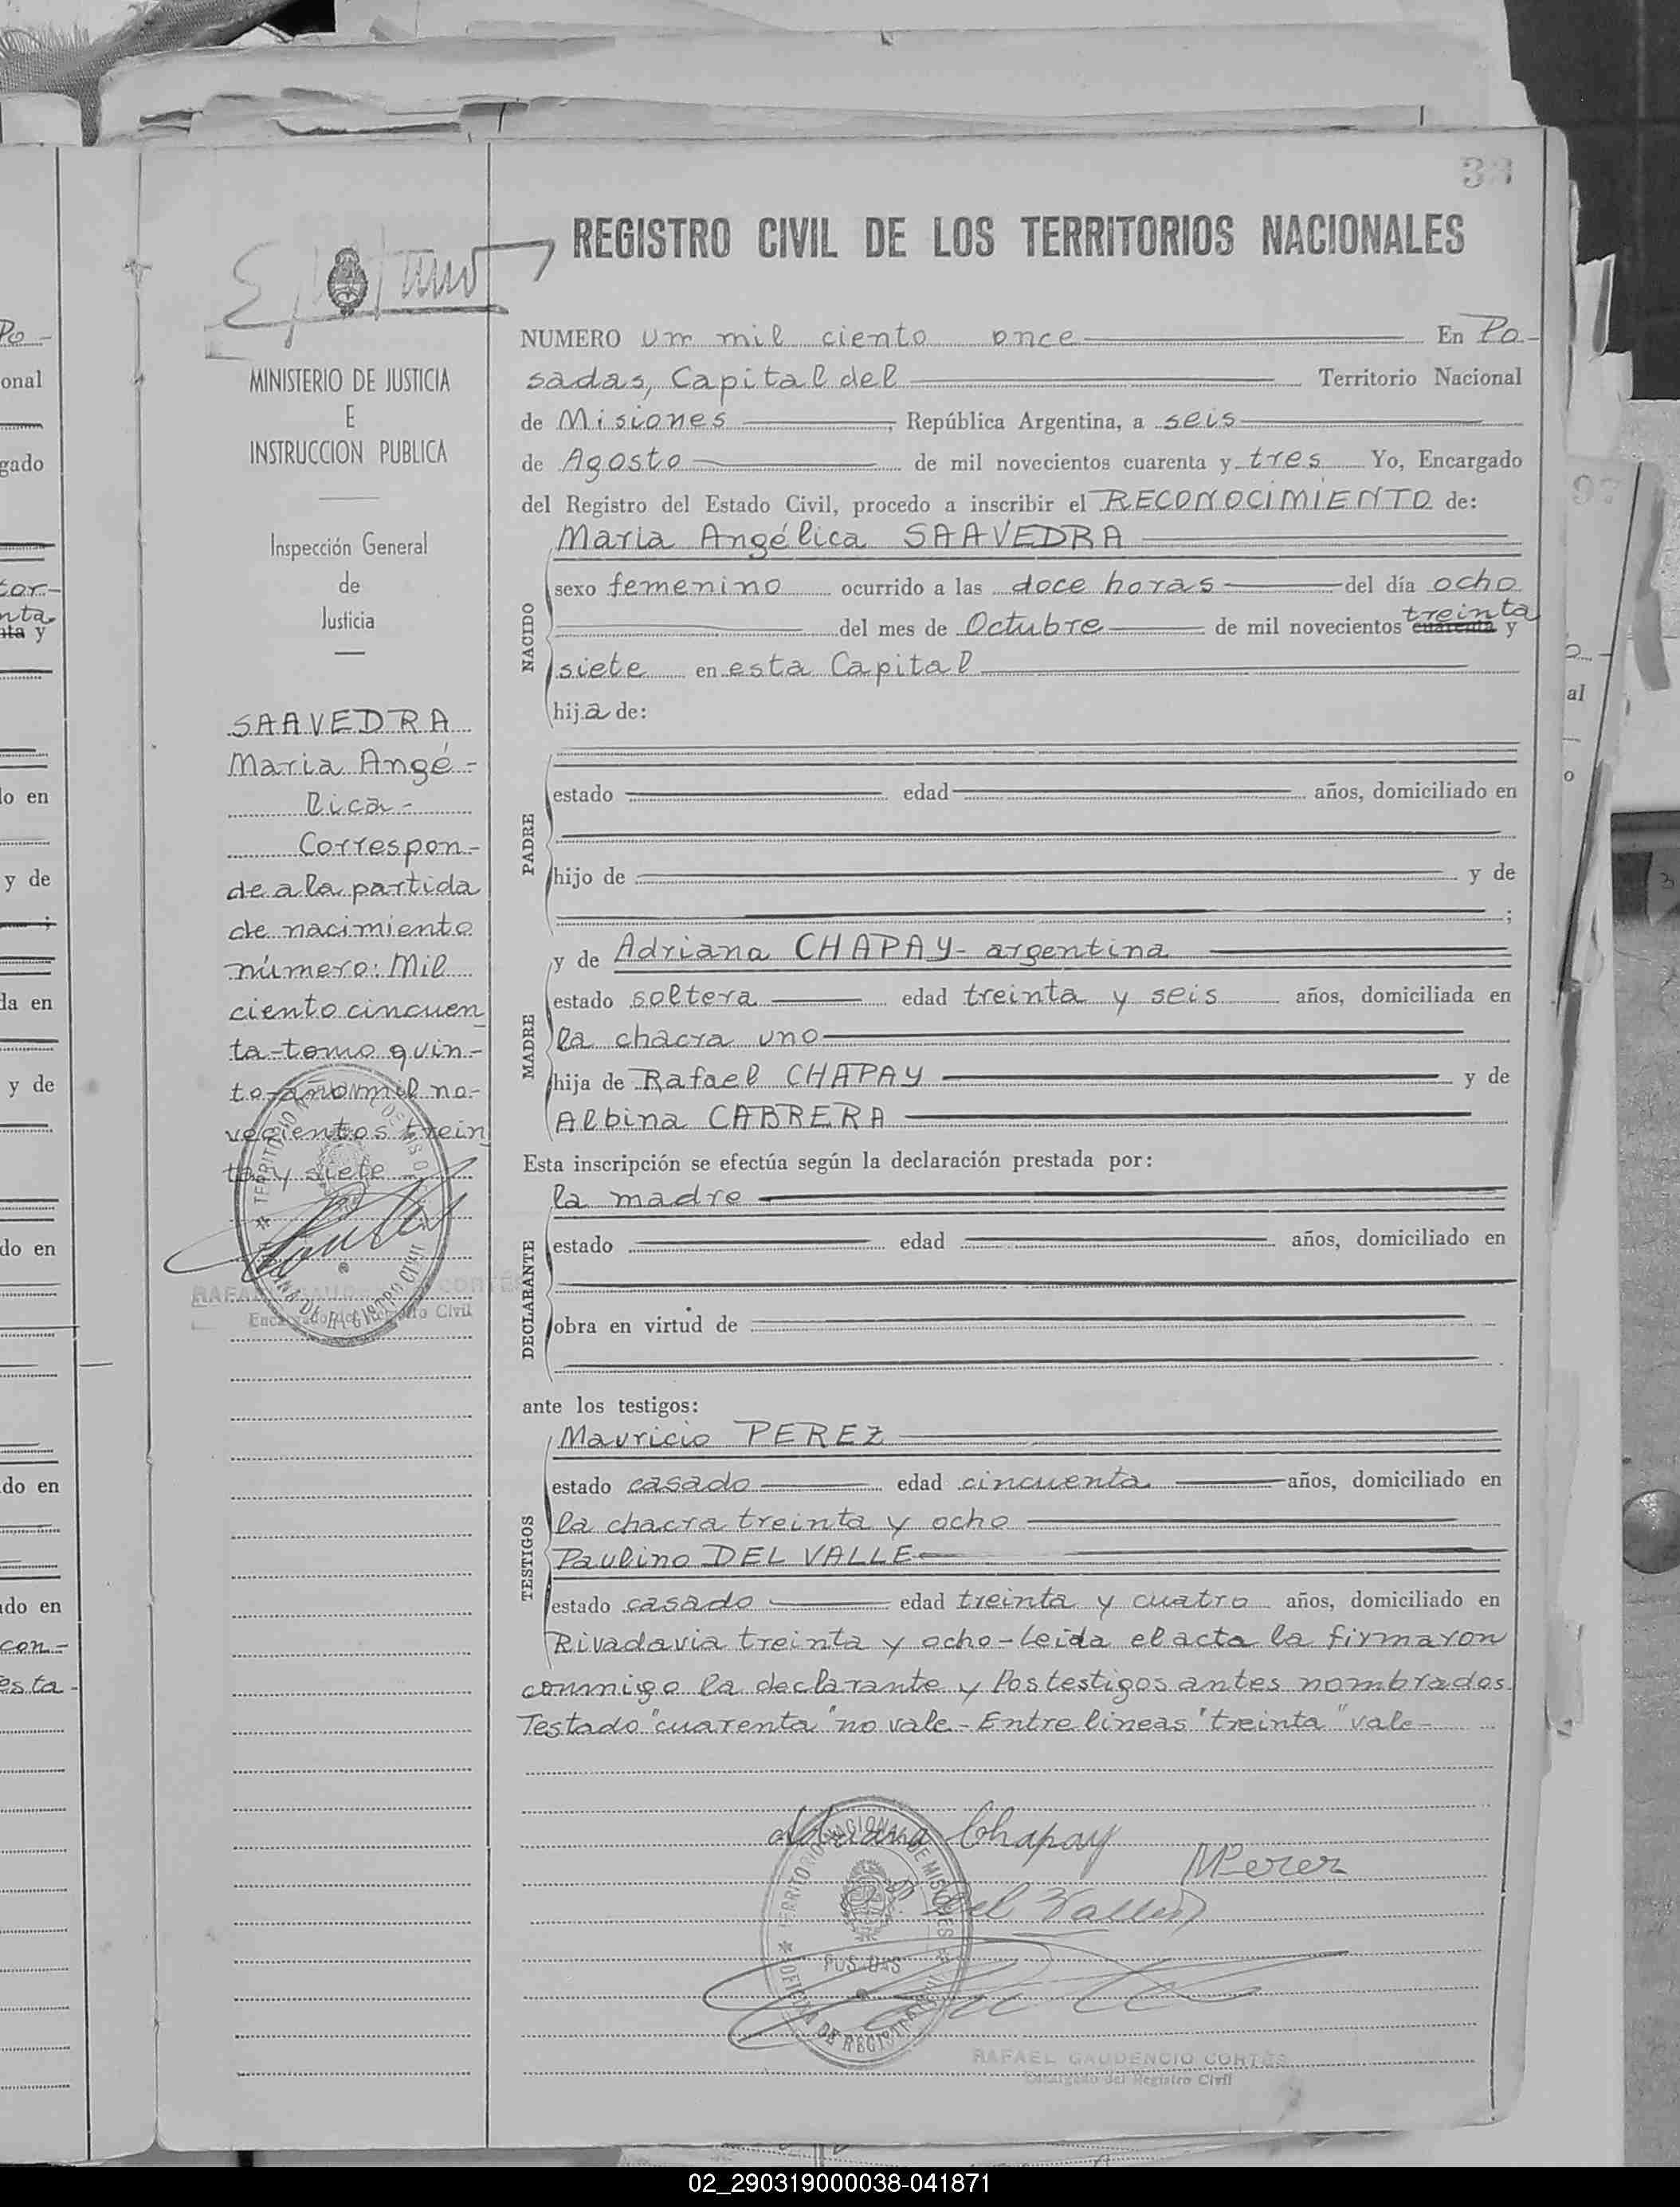 REGISTRO CIVIL DE LOS TERRITORIOS NACIONALES
MINISTERIO DE JUSTICIA
E
INSTRUCCION PUBLICA
Inspección General
de
Justicia
SAAVEDRA
Maria Angé-
lica-
Correspon-
de a la partida
de nacimiento
número: Mil
ciento cincuen
ta-tomo quin-
to-año mil no-
vecientos trein
ta y siete
RAFAEL GAUDENCIO CORTÉS
Encargado del Registro Civil
NUMERO un mil ciento once En Po-
sadas, Capital del Territorio Nacional
de Misiones, República Argentina, a seis
de Agosto de mil novecientos cuarenta y tres Yo, Encargado
del Registro del Estado Civil, procedo a inscribir el RECONOCIMIENTO de:
NACIDO
Maria Angélica SAAVEDRA
sexo femenino ocurrido a las doce horas del día ocho
treinta
del mes de Octubre de mil novecientos cuarenta y
siete en esta Capital
hija de:
PADRE
estado edad años, domiciliado en
hijo de y de
;
MADRE
y de Adriana CHAPAY- argentina
estado soltera edad treinta y seis años, domiciliada en
la chacra uno
hija de Rafael CHAPAY y de
Albina CABRERA
Esta inscripción se efectúa según la declaración prestada por:
DECLARANTE
la madre
estado edad años, domiciliado en
obra en virtud de
ante los testigos:
TESTIGOS
Mauricio PEREZ
estado casado edad cincuenta años, domiciliado en
la chacra treinta y ocho
Paulino DEL VALLE
estado casado edad treinta y cuatro años, domiciliado en
Rivadavia treinta y ocho-leida el acta la firmaron
conmigo la declarante y los testigos antes nombrados.
Testado "cuarenta" no vale.- Entre lineas "treinta" vale-
Adriana Chapay
MPerez
del Valle
TERRITORIO NACIONAL DE MISIONES
POSADAS
OFICINA DE REGISTRO CIVIL
RAFAEL GAUDENCIO CORTÉS
Encargado del Registro Civil
02_290319000038-041871